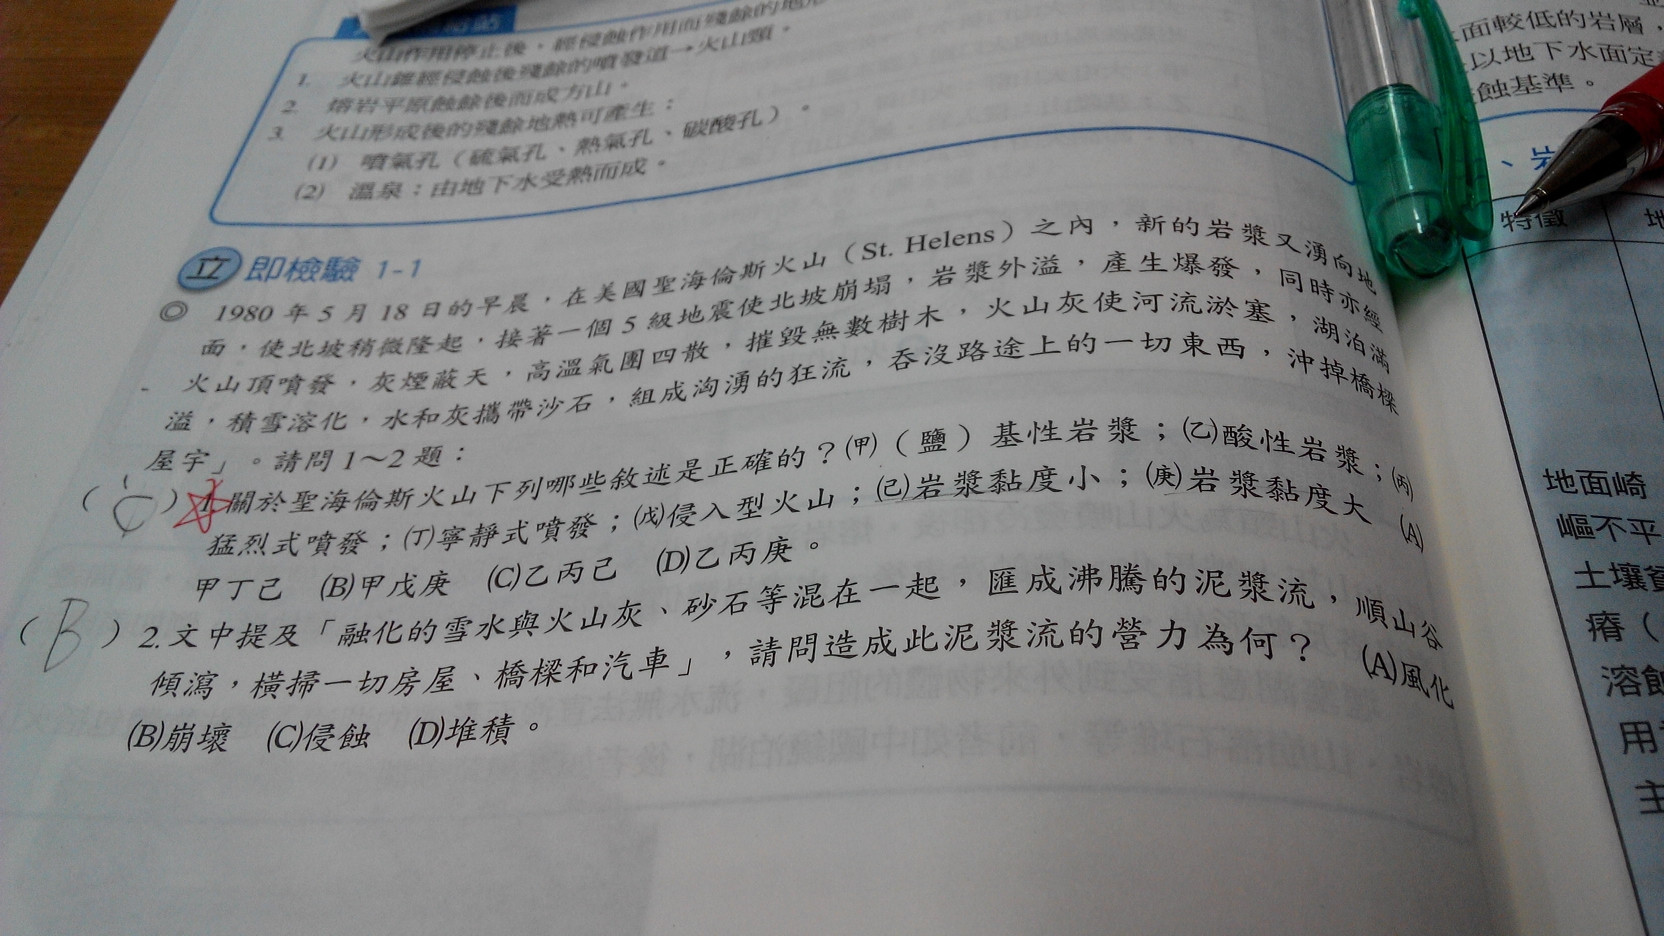 火山作用停止後，經侵蝕作用而殘餘的地形
1. 火山錐經侵蝕後殘餘的噴發道→火山頸。
2. 熔岩平原蝕餘後而成方山。
3. 火山形成後的殘餘地熱可產生：
(1) 噴氣孔（硫氣孔、熱氣孔、碳酸孔）。
(2) 溫泉：由地下水受熱而成。
立即檢驗 1-1
◎ 1980 年 5 月 18 日的早晨，在美國聖海倫斯火山（St. Helens）之內，新的岩漿又湧向地
面，使北坡稍微隆起，接著一個 5 級地震使北坡崩塌，岩漿外溢，產生爆發，同時亦經
火山頂噴發，灰煙蔽天，高溫氣團四散，摧毀無數樹木，火山灰使河流淤塞，湖泊滿
溢，積雪溶化，水和灰攜帶沙石，組成洶湧的狂流，吞沒路途上的一切東西，沖掉橋樑
屋宇」。請問 1～2 題：
（C）1.關於聖海倫斯火山下列哪些敘述是正確的？(甲)（鹽）基性岩漿；(乙)酸性岩漿；(丙)
猛烈式噴發；(丁)寧靜式噴發；(戊)侵入型火山；(己)岩漿黏度小；(庚)岩漿黏度大 (A)
甲丁己 (B)甲戊庚 (C)乙丙己 (D)乙丙庚。
（B）2.文中提及「融化的雪水與火山灰、砂石等混在一起，匯成沸騰的泥漿流，順山谷
傾瀉，橫掃一切房屋、橋樑和汽車」，請問造成此泥漿流的營力為何？ (A)風化
(B)崩壞 (C)侵蝕 (D)堆積。
面較低的岩層，
以地下水面定
蝕基準。
、岩
特徵
地
地面崎
嶇不平
土壤貧
瘠（
溶蝕
用
主